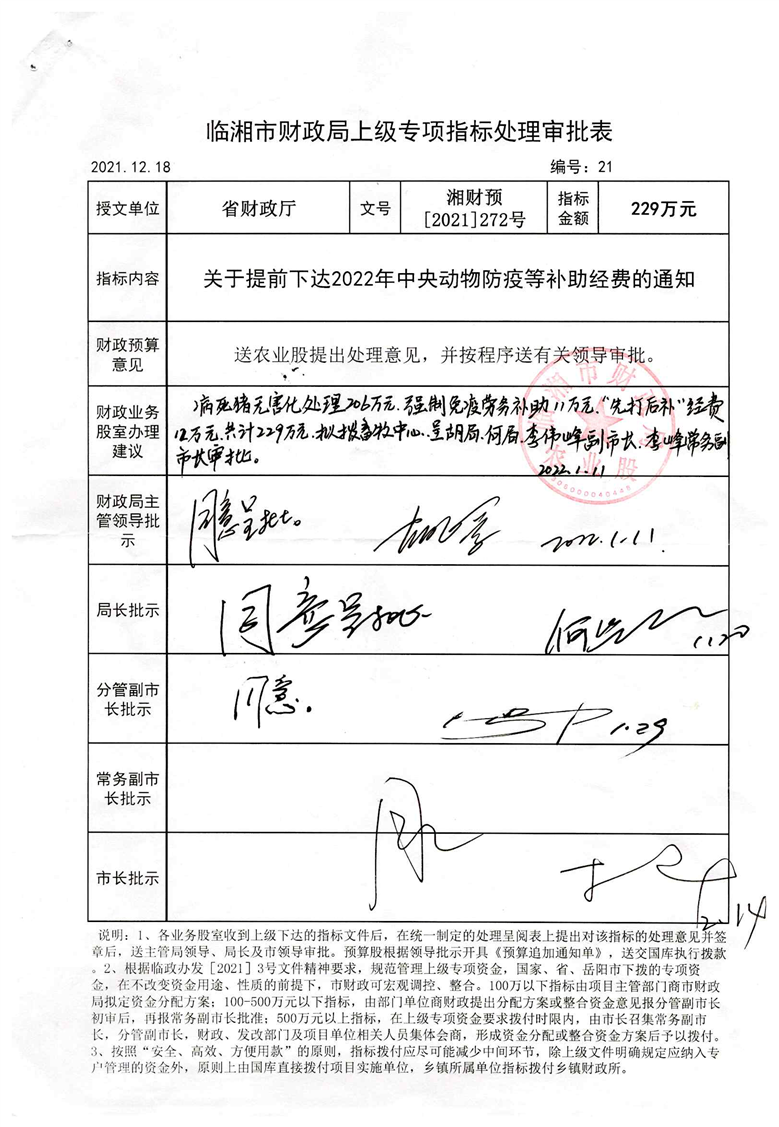 临湘市财政局上级专项指标处理审批表
2021.12.18 编号：21
授文单位 省财政厅 文号 湘财预[2021]272号 指标金额 229万元
指标内容 关于提前下达2022年中央动物防疫等补助经费的通知
财政预算意见 送农业股提出处理意见，并按程序送有关领导审批。
财政业务股室办理建议
病死猪无害化处理206万元、强制免疫劳务补助11万元、“先打后补”经费
12万元，共计229万元，拟拨畜牧中心。呈胡局、何局、李伟峰副市长、李峰常务副
市长审批。
2022.1.11
农业股
财政局主管领导批示 同意呈批。 2022.1.11.
局长批示 同意呈批 1.20
分管副市长批示 同意。 1.29
常务副市长批示
市长批示 2.14
说明：1、各业务股室收到上级下达的指标文件后，在统一制定的处理呈阅表上提出对该指标的处理意见并签
章后，送主管局领导、局长及市领导审批。预算股根据领导批示开具《预算追加通知单》，送交国库执行拨款
。2、根据临政办发[2021]3号文件精神要求，规范管理上级专项资金，国家、省、岳阳市下拨的专项资
金，在不改变资金用途、性质的前提下，市财政可宏观调控、整合。100万以下指标由项目主管部门商市财政
局拟定资金分配方案；100-500万元以下指标，由部门单位商财政提出分配方案或整合资金意见报分管副市长
初审后，再报常务副市长批准；500万元以上指标，在上级专项资金要求拨付时限内，由市长召集常务副市
长，分管副市长，财政、发改部门及项目单位相关人员集体会商，形成资金分配或整合资金方案后予以拨付。
3、按照“安全、高效、方便用款”的原则，指标拨付应尽可能减少中间环节，除上级文件明确规定应纳入专
户管理的资金外，原则上由国库直接拨付项目实施单位，乡镇所属单位指标拨付乡镇财政所。